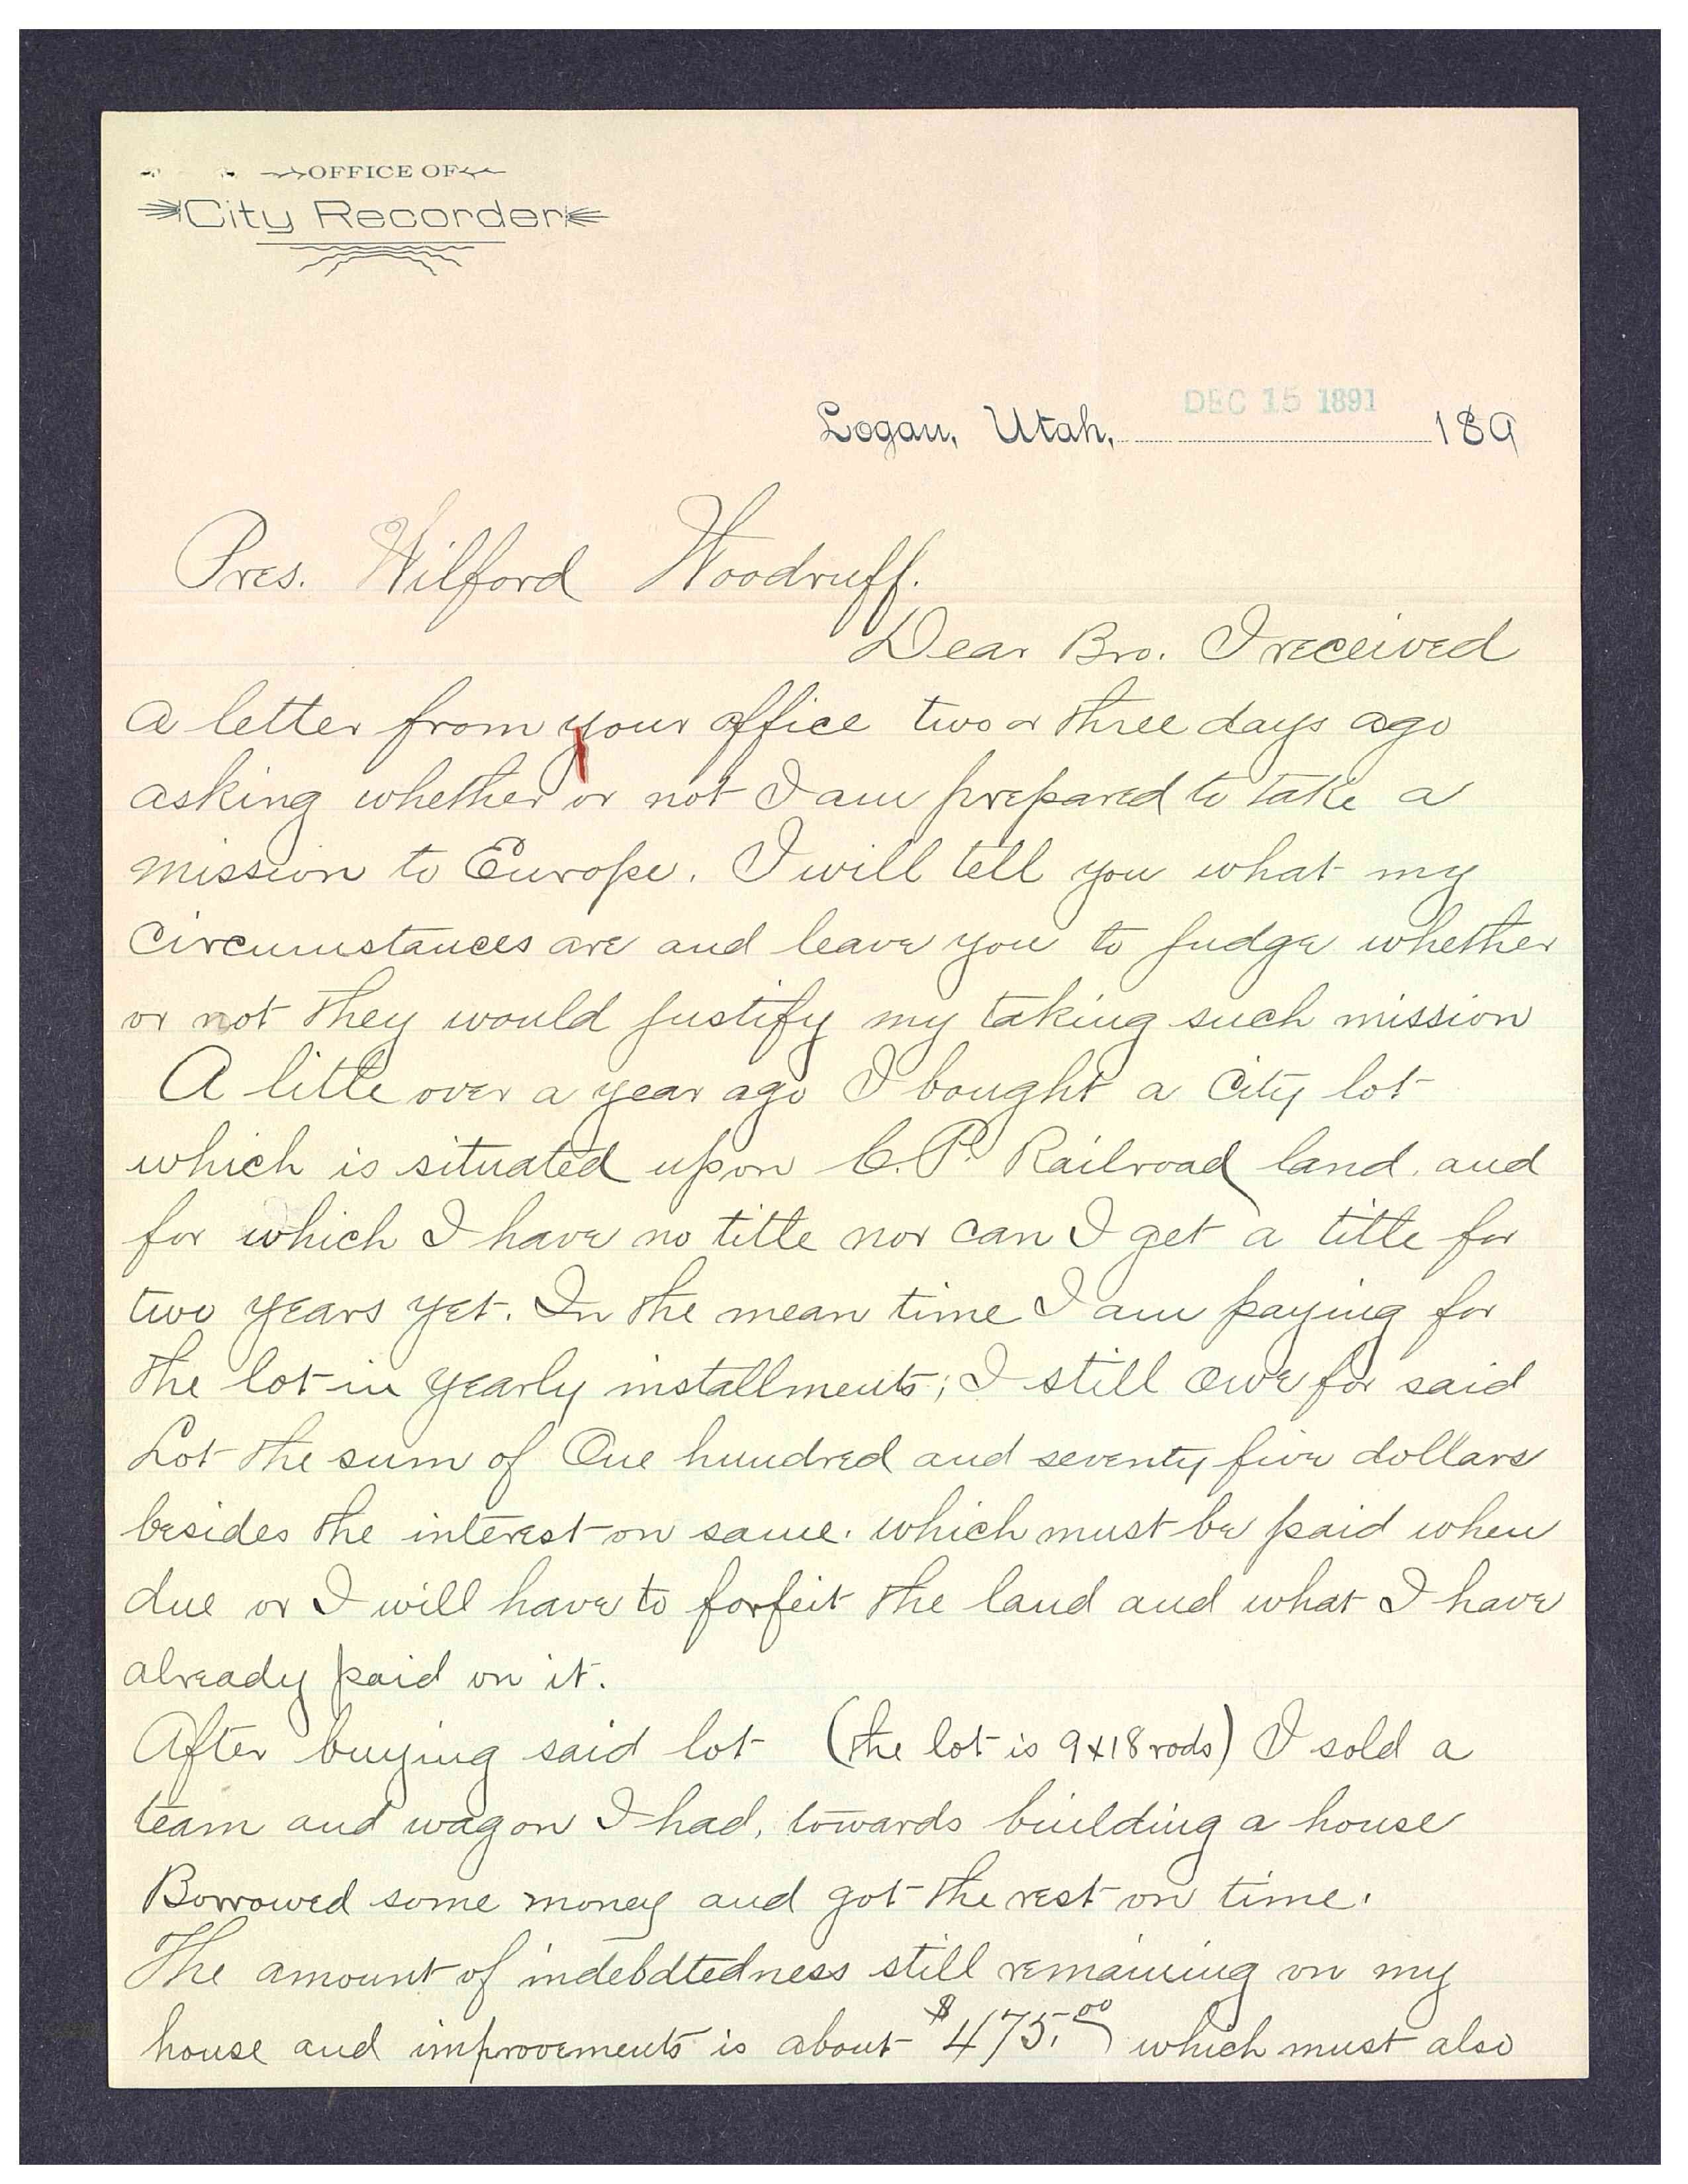 OFFICE OF
City Recorder
DEC 15 1891
Logan, Utah, 189
Pres. Wilford Woodruff.
Dear Bro. I received
a letter from your office two or three days ago
asking whether or not I am prepared to take a
mission to Europe. I will tell you what my
circumstances are and leave you to judge whether
or not they would justify my taking such mission
A little over a year ago I bought a City lot
which is situated upon C.P. Railroad land. and
for which I have no title nor can I get a title for
two years yet. In the mean time I am paying for
the lot in yearly installments; I still owe for said
Lot the sum of One hundred and seventy five dollars
besides the interest on same. which must be paid when
due or I will have to forfeit the land and what I have
already paid on it.
After buying said lot (the lot is 9x18 rods) I sold a
team and wagon I had, towards building a house
Borrowed some money and got the rest on time.
The amount of indebdtedness still remaining on my
house and improvements is about $475.00 which must also